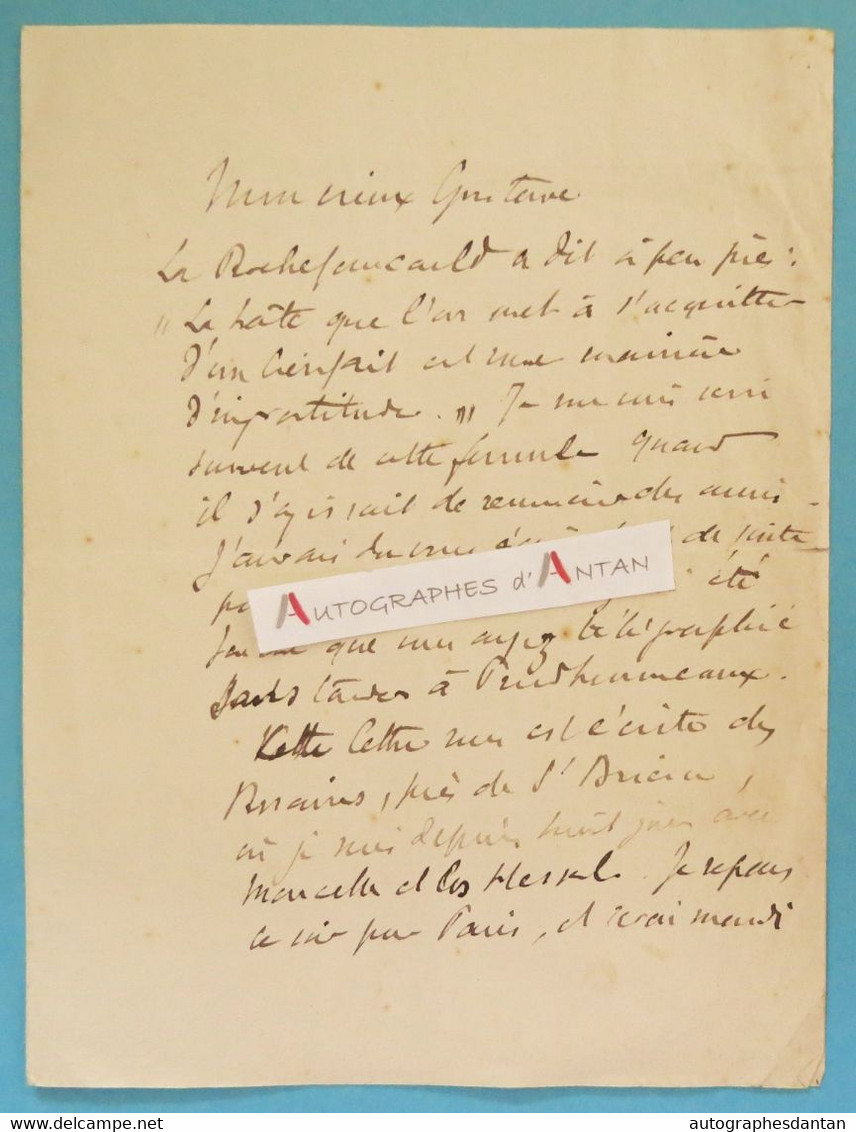 Mon vieux Gustave
La Rochefoucauld a dit à peu près :
"La hâte que l'on met à s'acquitter
d'un bienfait est une manière
d'ingratitude." Je me suis servi
souvent de cette formule quand
il s'agissait de remercier des amis.
J'aurais dû vous de suite
AUTOGRAPHES d'ANTAN
été
que vous ayez télégraphié
sans tarder à Prudhommeaux.
Cette lettre vous est écrite des
Rosaires, près de St Brieuc,
où je suis depuis huit jours avec
Marcelle et les Hessel. Je repars
ce soir pour Paris, et serai mardi
www.delcampe.net
autographesdantan